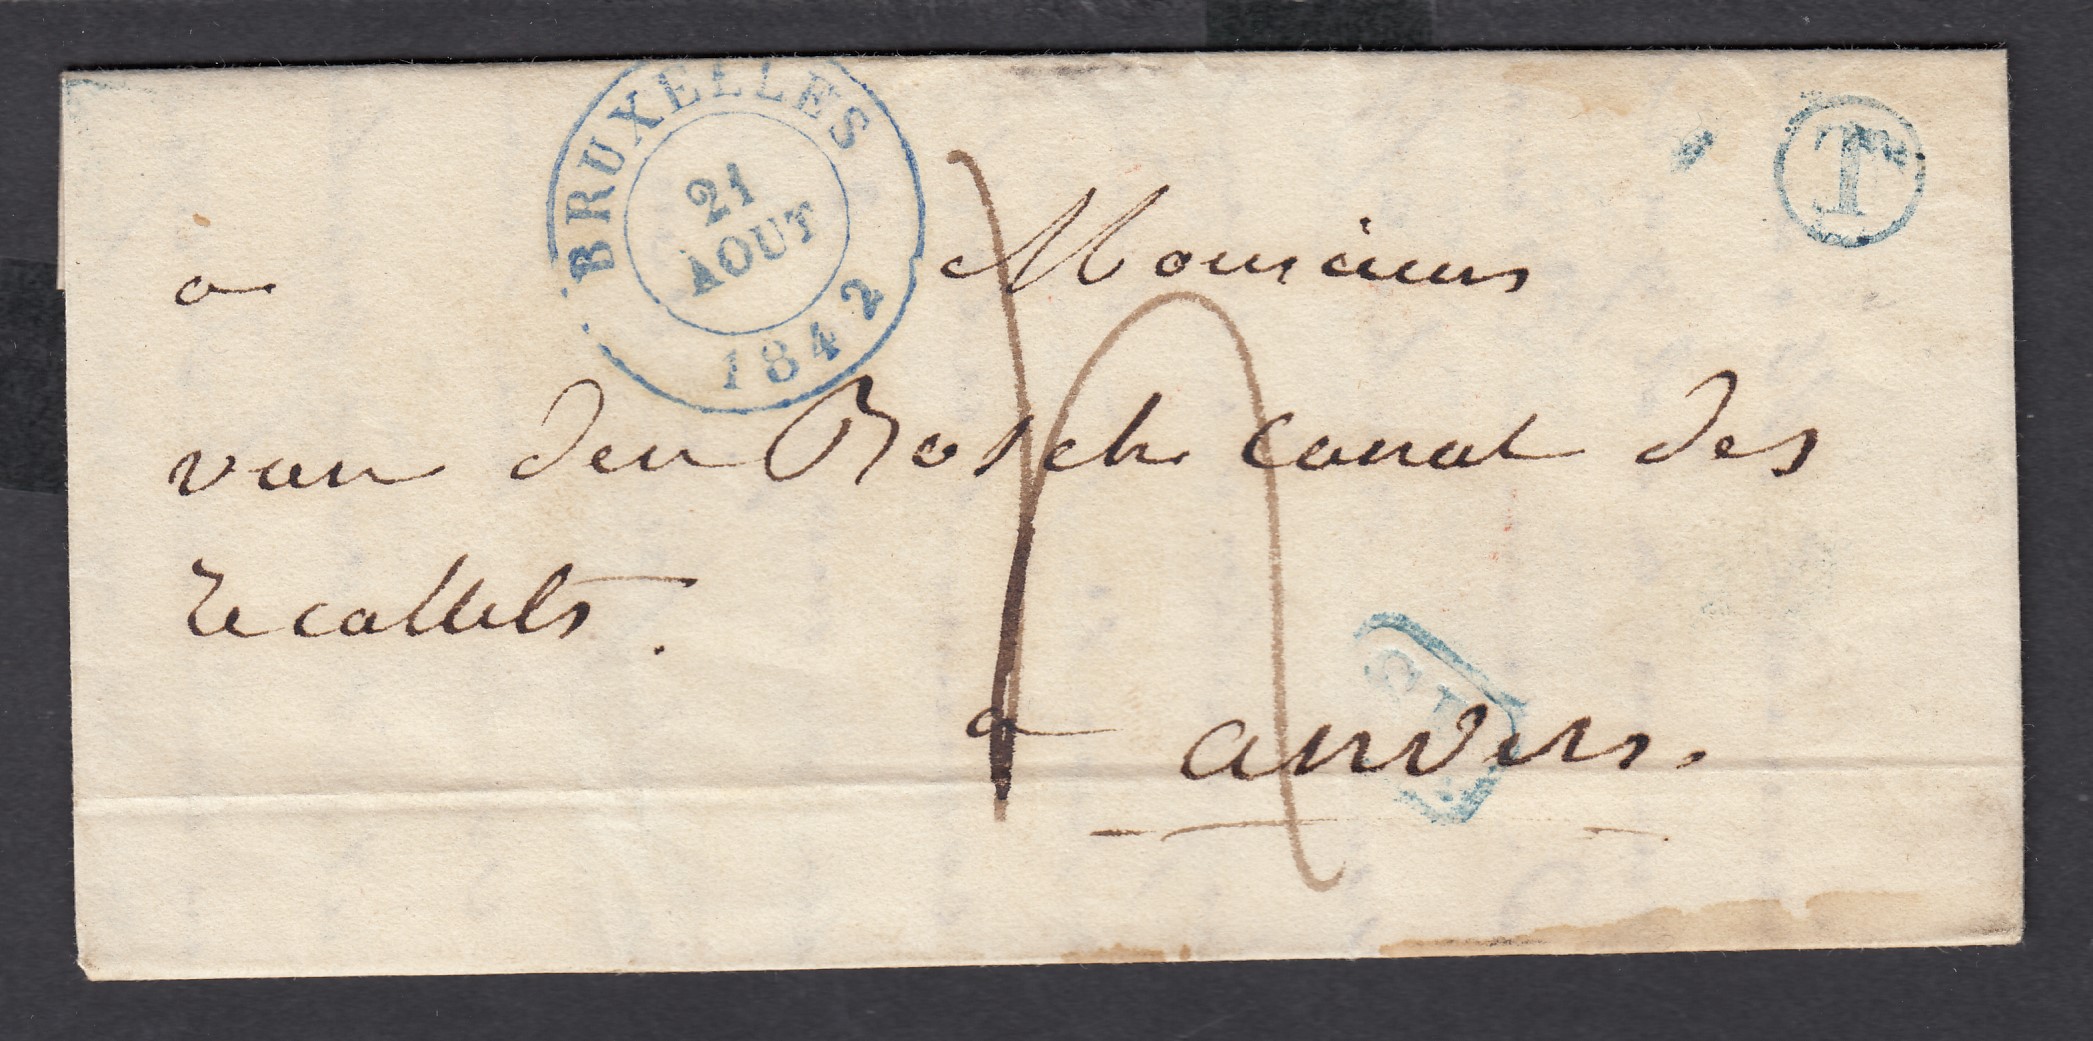 BRUXELLES
21
AOUT
1842
T
a Monsieur
van den Bosch canal des
Recollets.
a anvers.